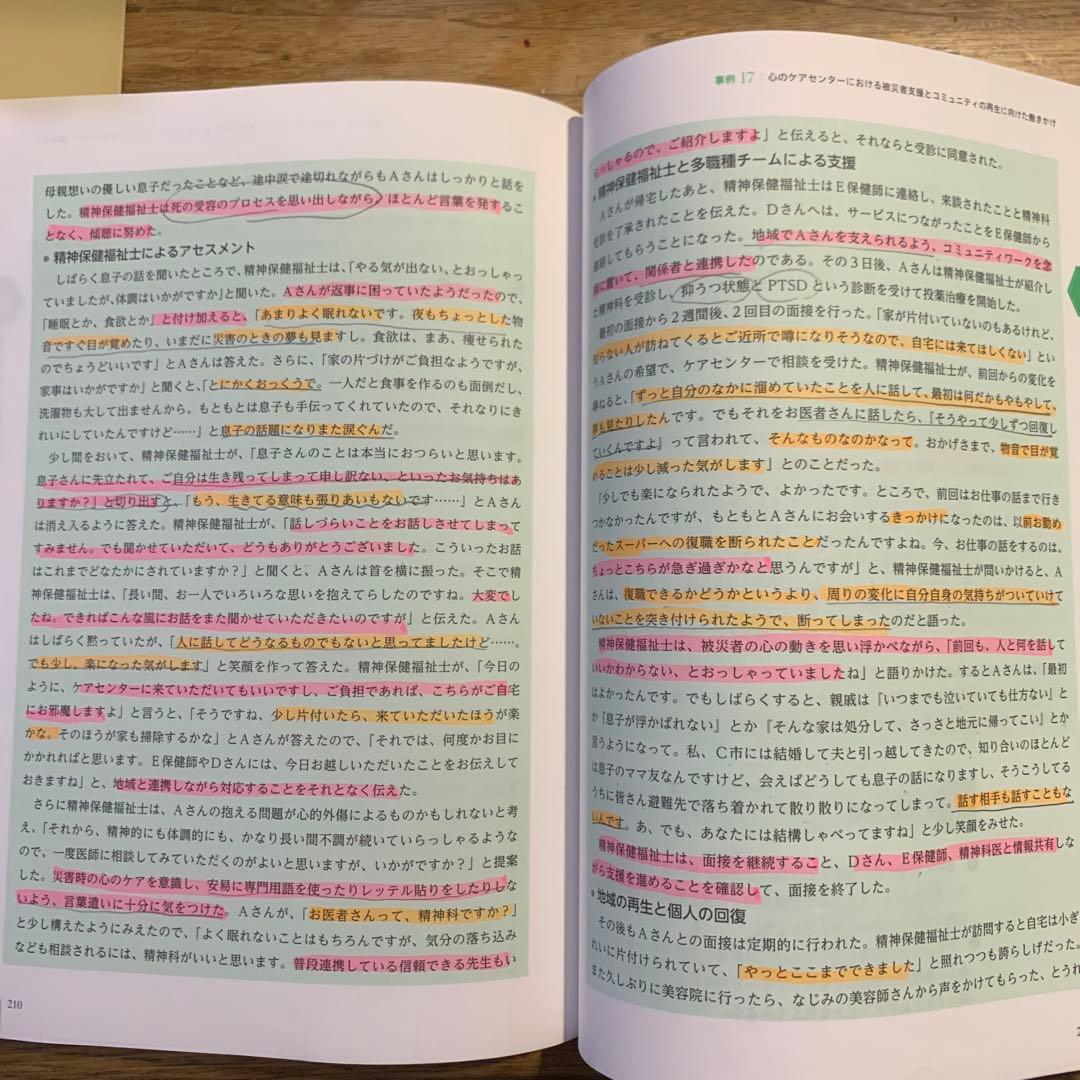 母親想いの優しい息子だったことなど、途中涙で途切れながらもAさんはしっかりと話を
した。精神保健福祉士は死の受容のプロセスを思い出しながら、ほとんど言葉を発するこ
となく、傾聴に努めた。
● 精神保健福祉士によるアセスメント
しばらく息子の話を聞いたところで、精神保健福祉士は、「やる気が出ない、とおっしゃっ
ていましたが、体調はいかがですか」と聞いた。Aさんが返事に困っていたようだったので、
「睡眠とか、食欲とか」と付け加えると、「あまりよく眠れないです。夜もちょっとした物
音ですぐ目が覚めたり、いまだに災害のときの夢も見ますし。食欲は、まあ、痩せられた
のでちょうどいいです」とAさんは答えた。さらに、「家の片づけがご負担なようですが、
家事はいかがですか」と聞くと、「とにかくおっくうで。一人だと食事を作るのも面倒だし、
洗濯物も大して出ませんから。もともとは息子も手伝ってくれていたので、それなりにき
れいにしていたんですけど……」と息子の話題になりまた涙ぐんだ。
少し間をおいて、精神保健福祉士が、「息子さんのことは本当におつらいと思います。
息子さんに先立たれて、ご自分は生き残ってしまって申し訳ない、といったお気持ちはあ
りますか？」と切り出すと、「もう、生きてる意味も張りあいもないです……」とAさん
は消え入るように答えた。精神保健福祉士が、「話しづらいことをお話しさせてしまって
すみません。でも聞かせていただいて、どうもありがとうございました。こういったお話
はこれまでどなたかにされていますか？」と聞くと、Aさんは首を横に振った。そこで精
神保健福祉士は、「長い間、お一人でいろいろな思いを抱えてらしたのですね。大変でし
たね。できればこんな風にお話をまた聞かせていただきたいのですが」と伝えた。Aさん
はしばらく黙っていたが、「人に話してどうなるものでもないと思ってましたけど……。
でも少し、楽になった気がします」と笑顔を作って答えた。精神保健福祉士が、「今日の
ように、ケアセンターに来ていただいてもいいですし、ご負担であれば、こちらがご自宅
にお邪魔しますよ」と言うと、「そうですね、少し片付いたら、来ていただいたほうが楽
かな。そのほうが家も掃除するかな」とAさんが答えたので、「それでは、何度かお目に
かかれればと思います。E保健師やDさんには、今日お越しいただいたことをお伝えして
おきますね」と、地域と連携しながら対応することをそれとなく伝えた。
さらに精神保健福祉士は、Aさんの抱える問題が心的外傷によるものかもしれないと考
え、「それから、精神的にも体調的にも、かなり長い間不調が続いていらっしゃるような
ので、一度医師に相談してみていただくのがよいと思いますが、いかがですか？」と提案
した。災害時の心のケアを意識し、安易に専門用語を使ったりレッテル貼りをしたりしな
いよう、言葉遣いに十分に気をつけた。Aさんが、「お医者さんって、精神科ですか？」
と少し構えたようにみえたので、「よく眠れないことはもちろんですが、気分の落ち込み
なども相談されるには、精神科がいいと思います。普段連携している信頼できる先生もい
210
事例 17 心のケアセンターにおける被災者支援とコミュニティの再生に向けた働きかけ
らっしゃるので、ご紹介しますよ」と伝えると、それならと受診に同意された。
● 精神保健福祉士と多職種チームによる支援
Aさんが帰宅したあと、精神保健福祉士はE保健師に連絡し、来談されたことと精神科
受診を了承されたことを伝えた。Dさんへは、サービスにつながったことをE保健師から
連絡してもらうことになった。地域でAさんを支えられるよう、コミュニティワークを念
頭に置いて、関係者と連携したのである。その3日後、Aさんは精神保健福祉士が紹介し
た精神科を受診し、抑うつ状態とPTSDという診断を受けて投薬治療を開始した。
最初の面接から2週間後、2回目の面接を行った。「家が片付いていないのもあるけれど、
知らない人が訪ねてくるとご近所で噂になりそうなので、自宅には来てほしくない」とい
うAさんの希望で、ケアセンターで相談を受けた。精神保健福祉士が、前回からの変化を
尋ねると、「ずっと自分のなかに溜めていたことを人に話して、最初は何だかもやもやして、
夢も見たりしたんです。でもそれをお医者さんに話したら、『そうやって少しずつ回復し
ていくんですよ』って言われて、そんなものなのかなって。おかげさまで、物音で目が覚
めることは少し減った気がします」とのことだった。
「少しでも楽になられたようで、よかったです。ところで、前回はお仕事の話まで行き
つかなかったんですが、もともとAさんにお会いするきっかけになったのは、以前お勤め
だったスーパーへの復職を断られたことだったんですよね。今、お仕事の話をするのは、
ちょっとこちらが急ぎ過ぎかなと思うんですが」と、精神保健福祉士が問いかけると、A
さんは、復職できるかどうかというより、周りの変化に自分自身の気持ちがついていけて
いないことを突き付けられたようで、断ってしまったのだと語った。
精神保健福祉士は、被災者の心の動きを思い浮かべながら、「前回も、人と何を話して
いいかわからない、とおっしゃっていましたね」と語りかけた。するとAさんは、「最初
はよかったんです。でもしばらくすると、親戚は『いつまでも泣いていても仕方ない』と
か『息子が浮かばれない』とか『そんな家は処分して、さっさと地元に帰ってこい』とか
言うようになって。私、C市には結婚して夫と引っ越してきたので、知り合いのほとんど
は息子のママ友なんですけど、会えばどうしても息子の話になりますし、そうこうしてる
うちに皆さん避難先で落ち着かれて散り散りになってしまって。話す相手も話すこともな
いんです。あ、でも、あなたには結構しゃべってますね」と少し笑顔をみせた。
精神保健福祉士は、面接を継続すること、Dさん、E保健師、精神科医と情報共有しな
がら支援を進めることを確認して、面接を終了した。
● 地域の再生と個人の回復
その後もAさんとの面接は定期的に行われた。精神保健福祉士が訪問すると自宅は小ぎ
れいに片付けられていて、「やっとここまでできました」と照れつつも誇らしげだった。
また久しぶりに美容院に行ったら、なじみの美容師さんから声をかけてもらった、とうれ